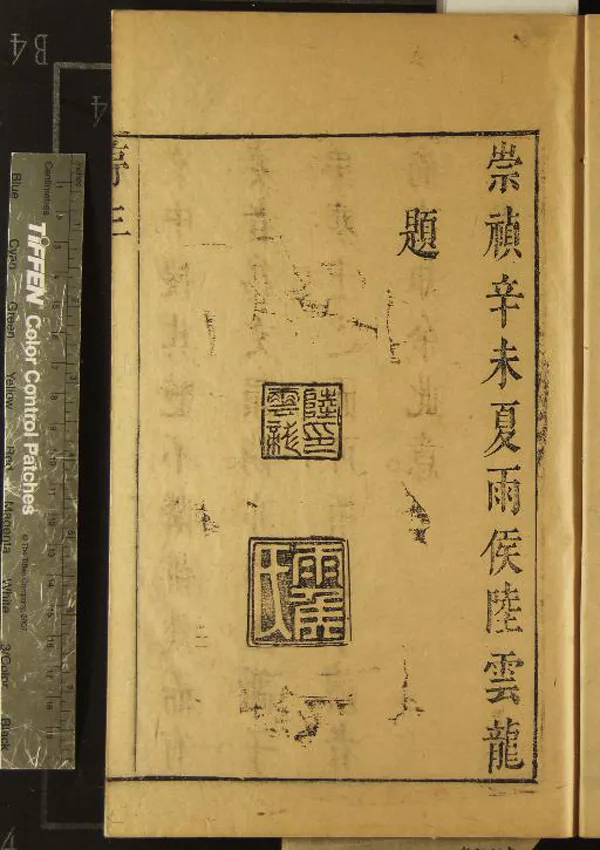 崇禎辛未夏雨侯陸雲龍
題
陸印
雲龍
雨侯
氏
序 三
B4
4
Centimetres
TIFFEN Color Control Patches
Blue
Cyan
Green
Yellow
Red
Magenta
White
3/Color
Black